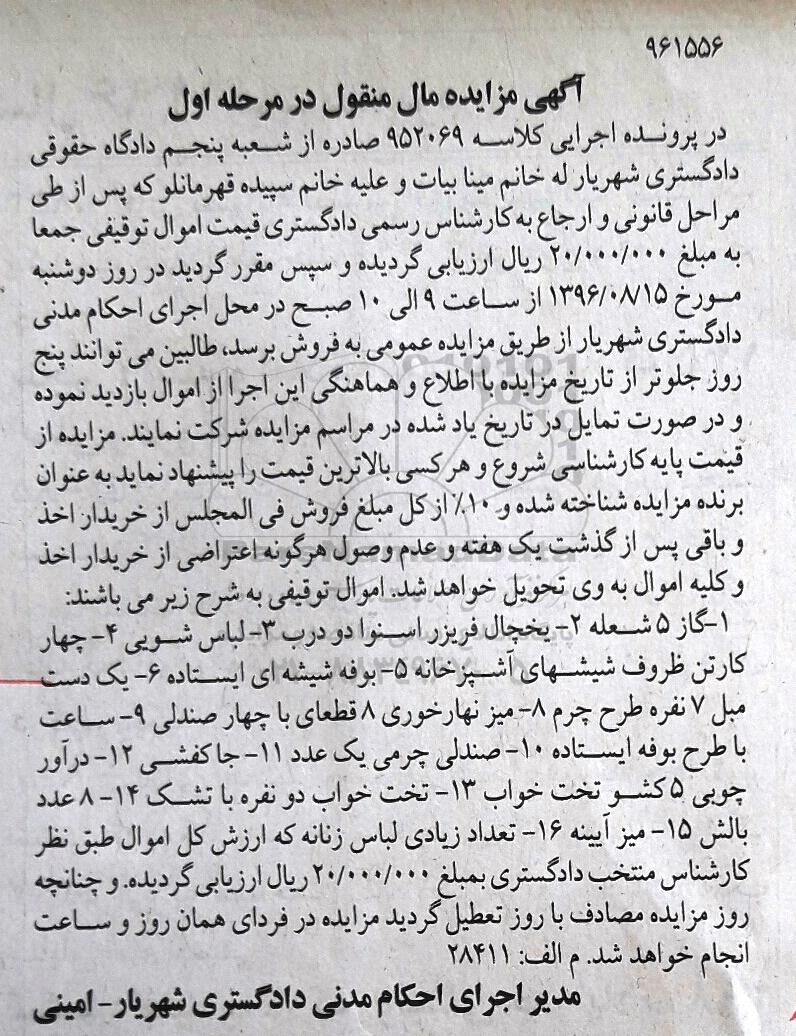 ۹۶۱۵۵۶
آگهی مزایده مال منقول در مرحله اول
در پرونده اجرایی کلاسه ۹۵۲۰۶۹ صادره از شعبه پنجم دادگاه حقوقی
دادگستری شهریار له خانم مینا بیات و علیه خانم سپیده قهرمانلو که پس از طی
مراحل قانونی و ارجاع به کارشناس رسمی دادگستری قیمت اموال توقیفی جمعا
به مبلغ ۲۰/۰۰۰/۰۰۰ ریال ارزیابی گردیده و سپس مقرر گردید در روز دوشنبه
مورخ ۱۳۹۶/۰۸/۱۵ از ساعت ۹ الی ۱۰ صبح در محل اجرای احکام مدنی
دادگستری شهریار از طریق مزایده عمومی به فروش برسد، طالبین می توانند پنج
روز جلوتر از تاریخ مزایده با اطلاع و هماهنگی این اجرا از اموال بازدید نموده
و در صورت تمایل در تاریخ یاد شده در مراسم مزایده شرکت نمایند. مزایده از
قیمت پایه کارشناسی شروع و هر کسی بالاترین قیمت را پیشنهاد نماید به عنوان
برنده مزایده شناخته شده و ۱۰٪ از کل مبلغ فروش فی المجلس از خریدار اخذ
و باقی پس از گذشت یک هفته و عدم وصول هرگونه اعتراضی از خریدار اخذ
و کلیه اموال به وی تحویل خواهد شد. اموال توقیفی به شرح زیر می باشند:
۱-گاز ۵ شعله ۲- یخچال فریزر اسنوا دو درب ۳- لباس شویی ۴- چهار
کارتن ظروف شیشهای آشپزخانه ۵- بوفه شیشه ای ایستاده ۶- یک دست
مبل ۷ نفره طرح چرم ۸- میز نهارخوری ۸ قطعای با چهار صندلی ۹- ساعت
با طرح بوفه ایستاده ۱۰- صندلی چرمی یک عدد ۱۱- جاکفشی ۱۲- درآور
چوبی ۵ کشو تخت خواب ۱۳- تخت خواب دو نفره با تشک ۱۴- ۸ عدد
بالش ۱۵- میز آیینه ۱۶- تعداد زیادی لباس زنانه که ارزش کل اموال طبق نظر
کارشناس منتخب دادگستری بمبلغ ۲۰/۰۰۰/۰۰۰ ریال ارزیابی گردیده. و چنانچه
روز مزایده مصادف با روز تعطیل گردید مزایده در فردای همان روز و ساعت
انجام خواهد شد. م الف: ۲۸۴۱۱
مدیر اجرای احکام مدنی دادگستری شهریار- امینی